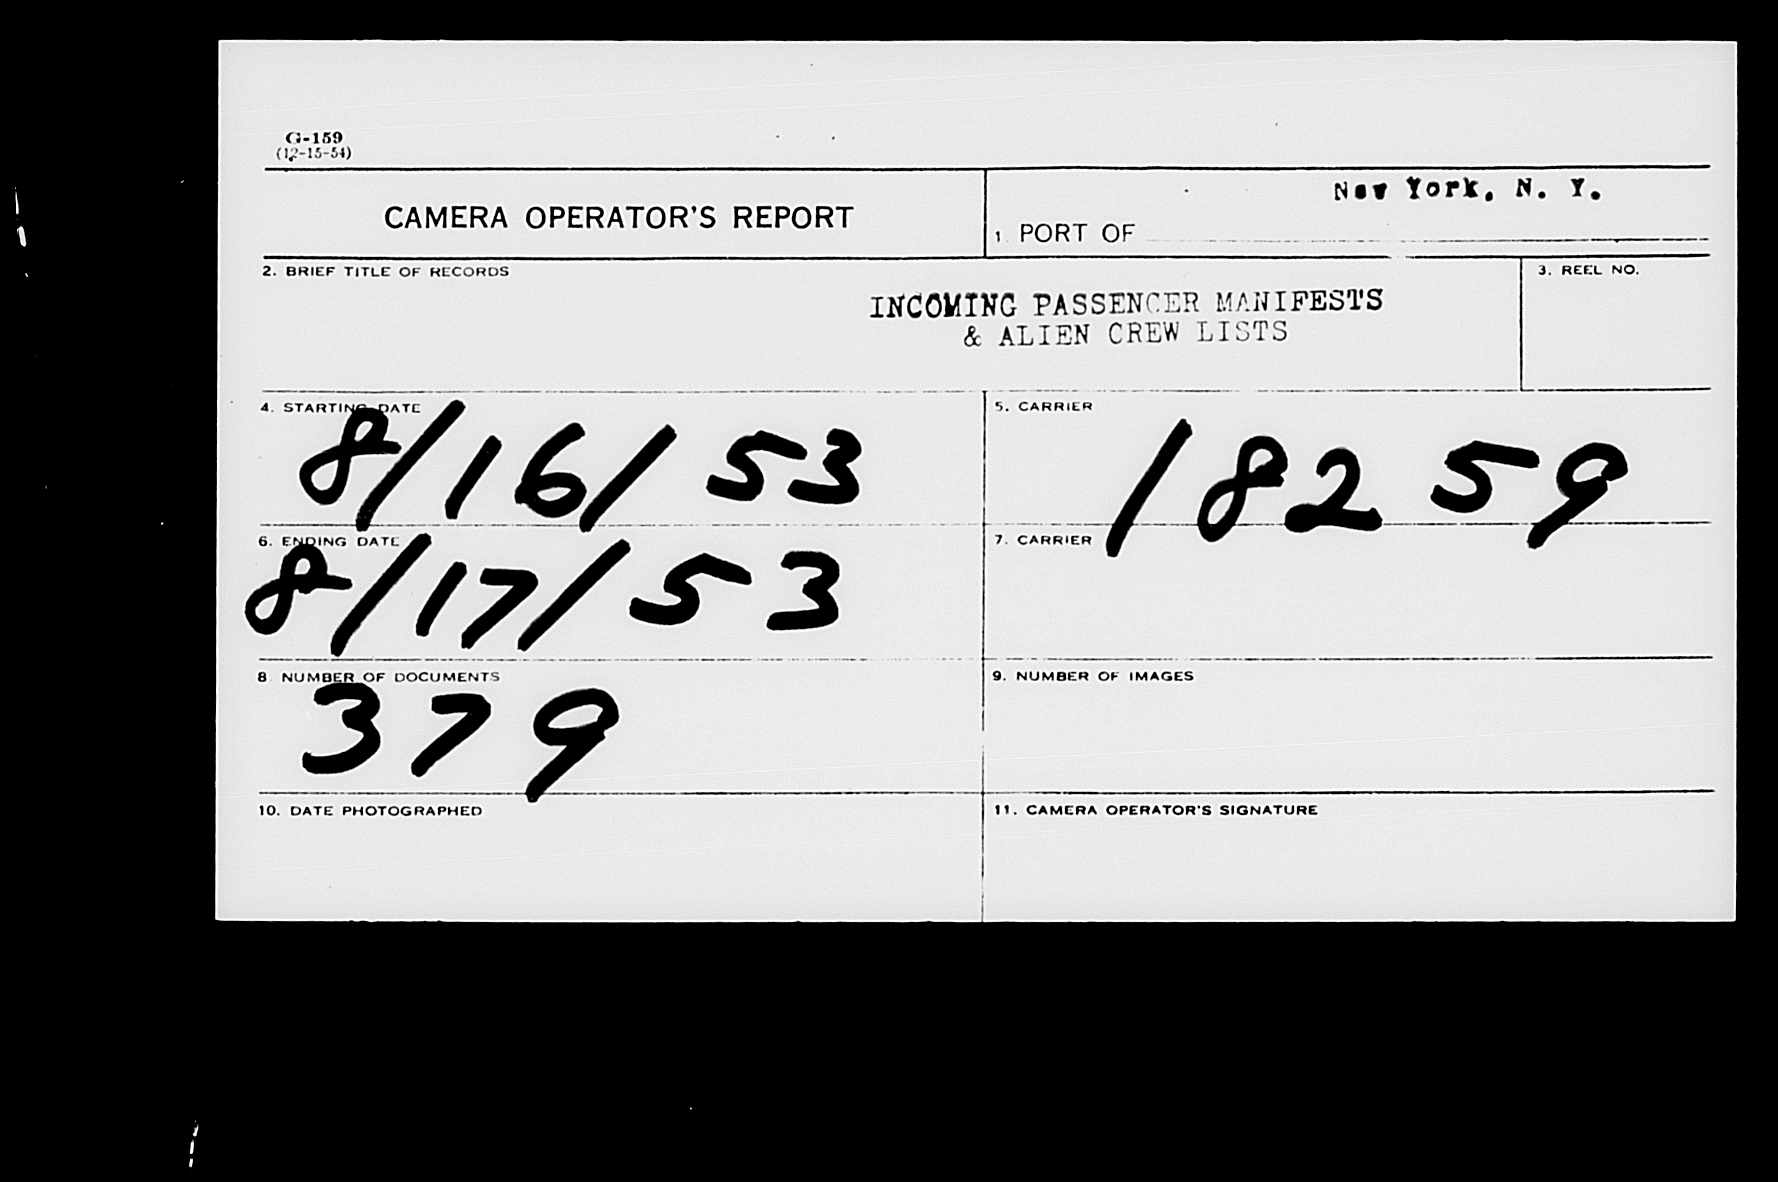 G-159
(12-15-54)
CAMERA OPERATOR'S REPORT
1. PORT OF New York, N. Y.
2. BRIEF TITLE OF RECORDS
INCOMING PASSENGER MANIFESTS
& ALIEN CREW LISTS
3. REEL NO.
4. STARTING DATE
8/16/53
5. CARRIER
18259
6. ENDING DATE
8/17/53
7. CARRIER
8. NUMBER OF DOCUMENTS
379
9. NUMBER OF IMAGES
10. DATE PHOTOGRAPHED
11. CAMERA OPERATOR'S SIGNATURE